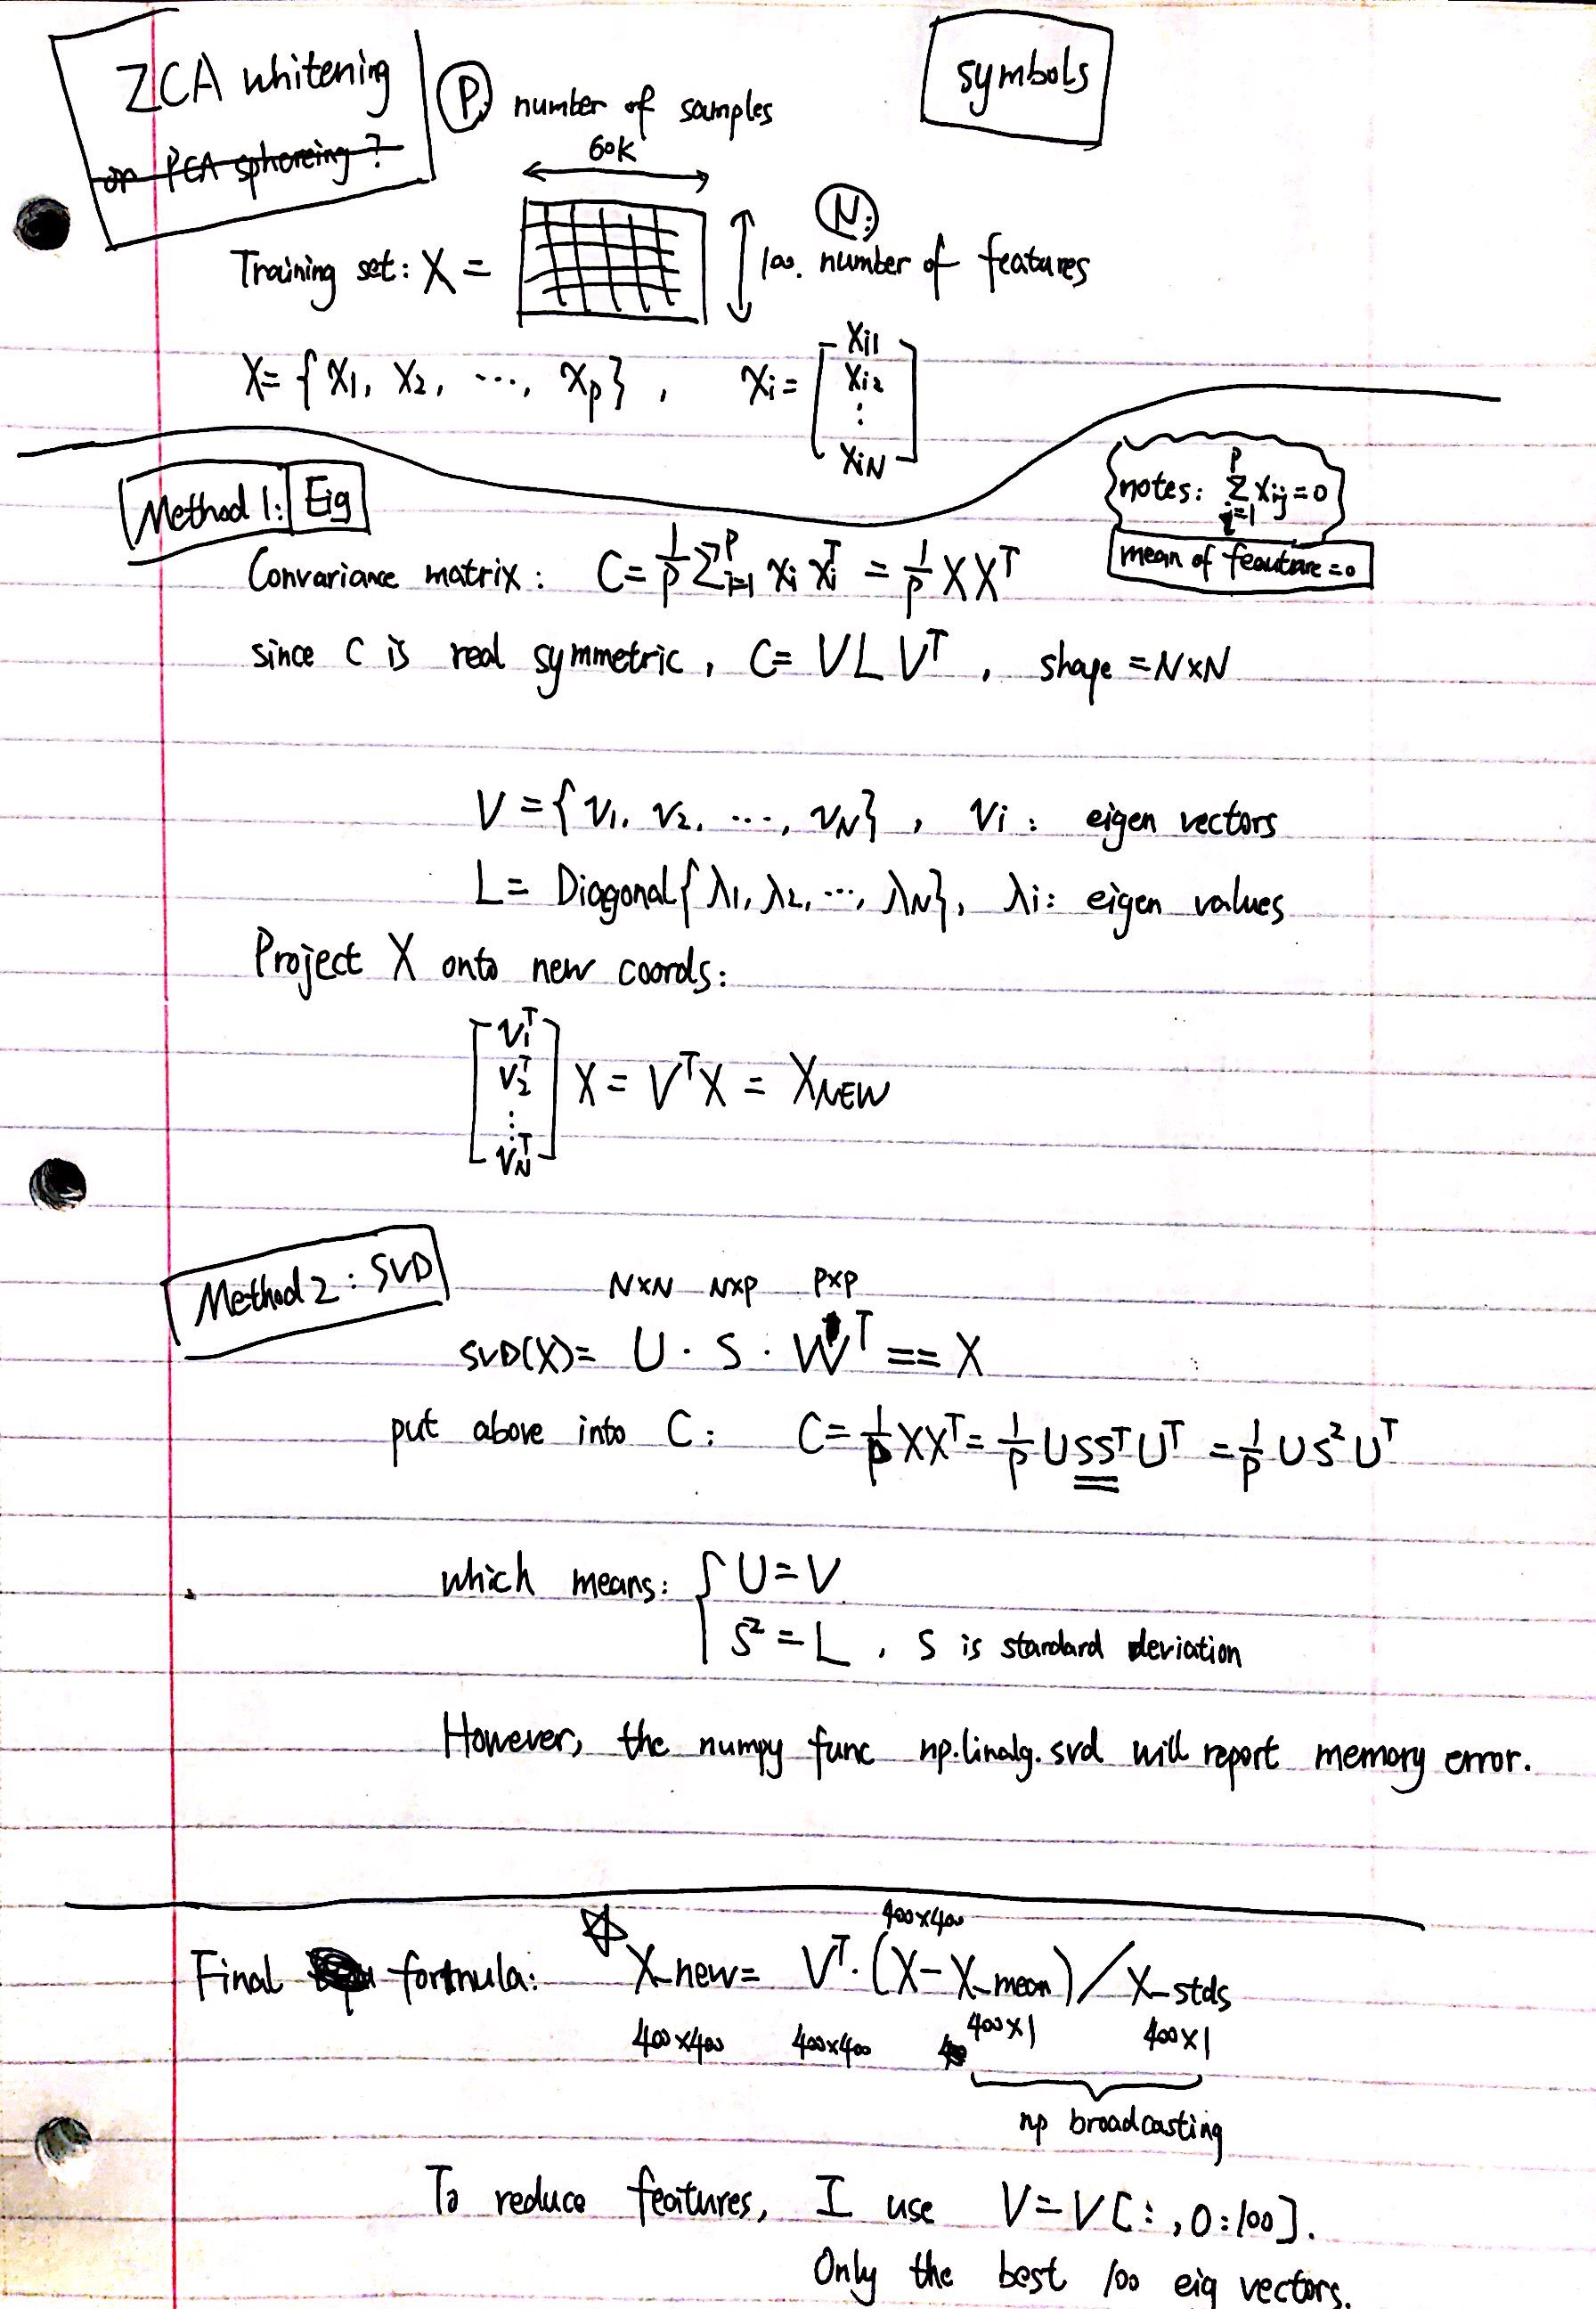 ZCA whitening
or PCA sphereing ?
P: number of samples
symbols
60k
N:
Training set: X =
100. number of features
X = { x1, x2, ..., xp } , xi = [ xi1 xi2 ⋮ xiN ]
Method 1: Eig
notes: Σ_{i=1}^{P} xij = 0
mean of feauture = 0
Convariance matrix: C = 1/P Σ_{i=1}^{P} xi xi^T = 1/P XX^T
since C is real symmetric, C = V L V^T , shape = N×N
V = { v1, v2, ..., vN } , vi : eigen vectors
L = Diagonal{ λ1, λ2, ..., λN }, λi: eigen values
Project X onto new coords:
[ v1^T v2^T ⋮ vN^T ] X = V^T X = XNEW
Method 2: SVD
N×N N×P P×P
SVD(X) = U · S · W^T == X
put above into C: C = 1/P XX^T = 1/P U SS^T U^T = 1/P U S^2 U^T
which means: { U = V
S^2 = L , S is standard deviation
However, the numpy func np.linalg.svd will report memory error.
400×400
Final formula: X_new = V^T · (X - X_mean) / X_stds
400×400 400×400 400×1 400×1
np broadcasting
To reduce features, I use V = V[:, 0:100].
Only the best 100 eig vectors.